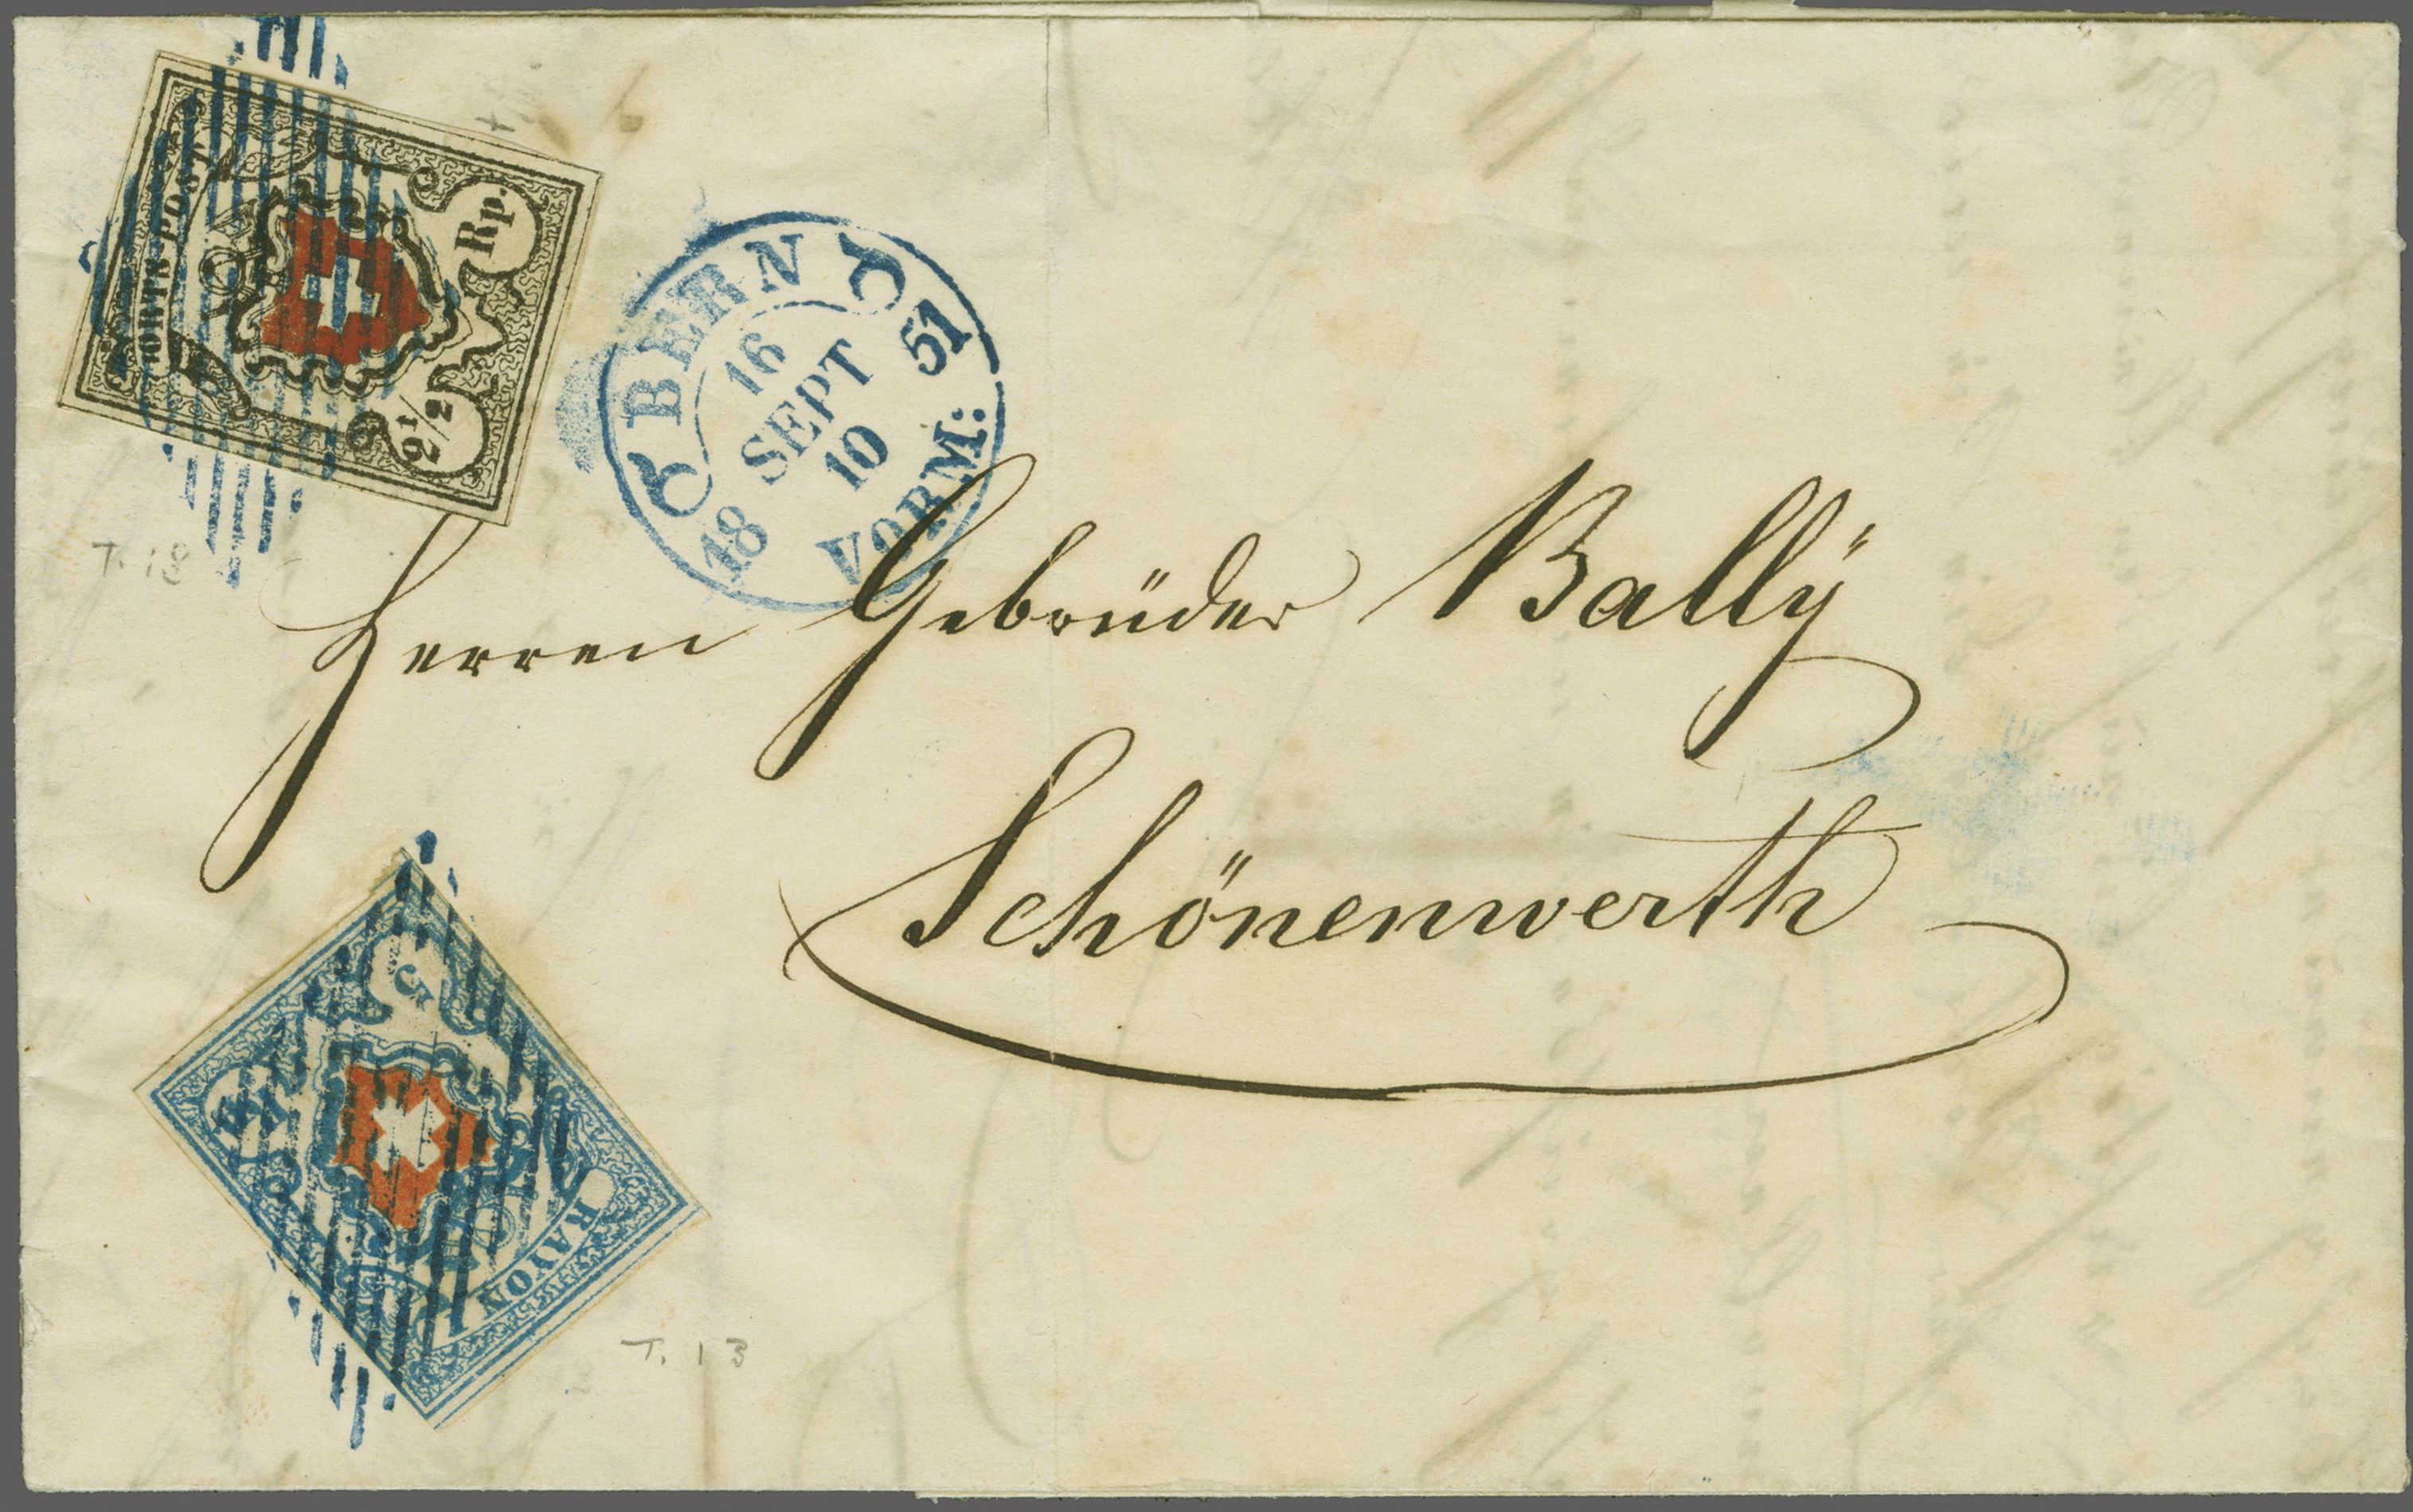 ORTS-POST
2 1/2 Rp.
BERN
16
SEPT
10
18 51
VORM:
T. 18
Herren Gebrüder Ballÿ
Schönenwerth
5 Rp.
RAYON I
T. 13